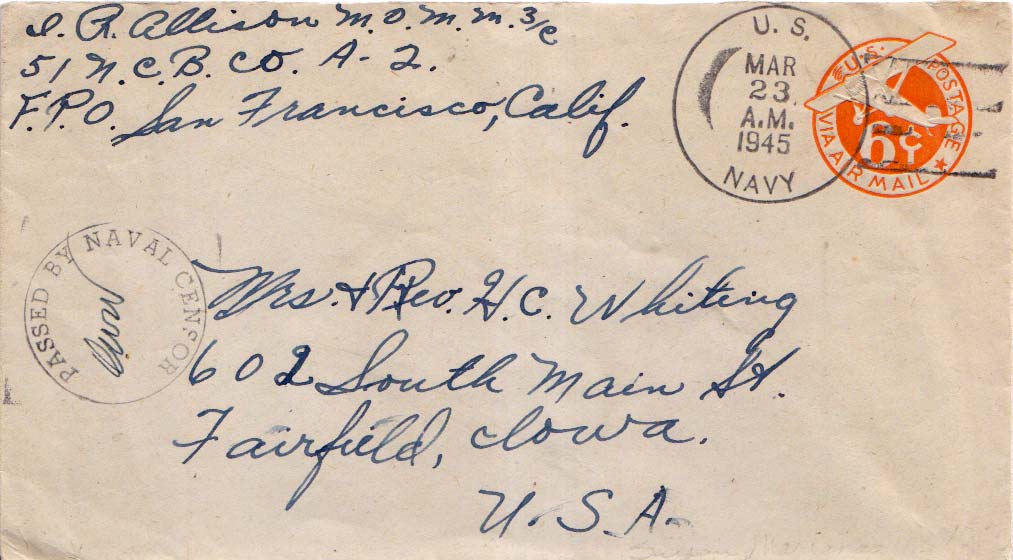 I. R. Allison M.O.M.M. 3/c
51 N.C.B. Co. A-2.
F.P.O. San Francisco, Calif.
U. S.
MAR
23
A.M.
1945
NAVY
U.S. POSTAGE
6¢
VIA AIR MAIL
PASSED BY NAVAL CENSOR
Mrs. & Rev. H. C. Whiting
602 South Main St.
Fairfield, Iowa.
U. S. A.